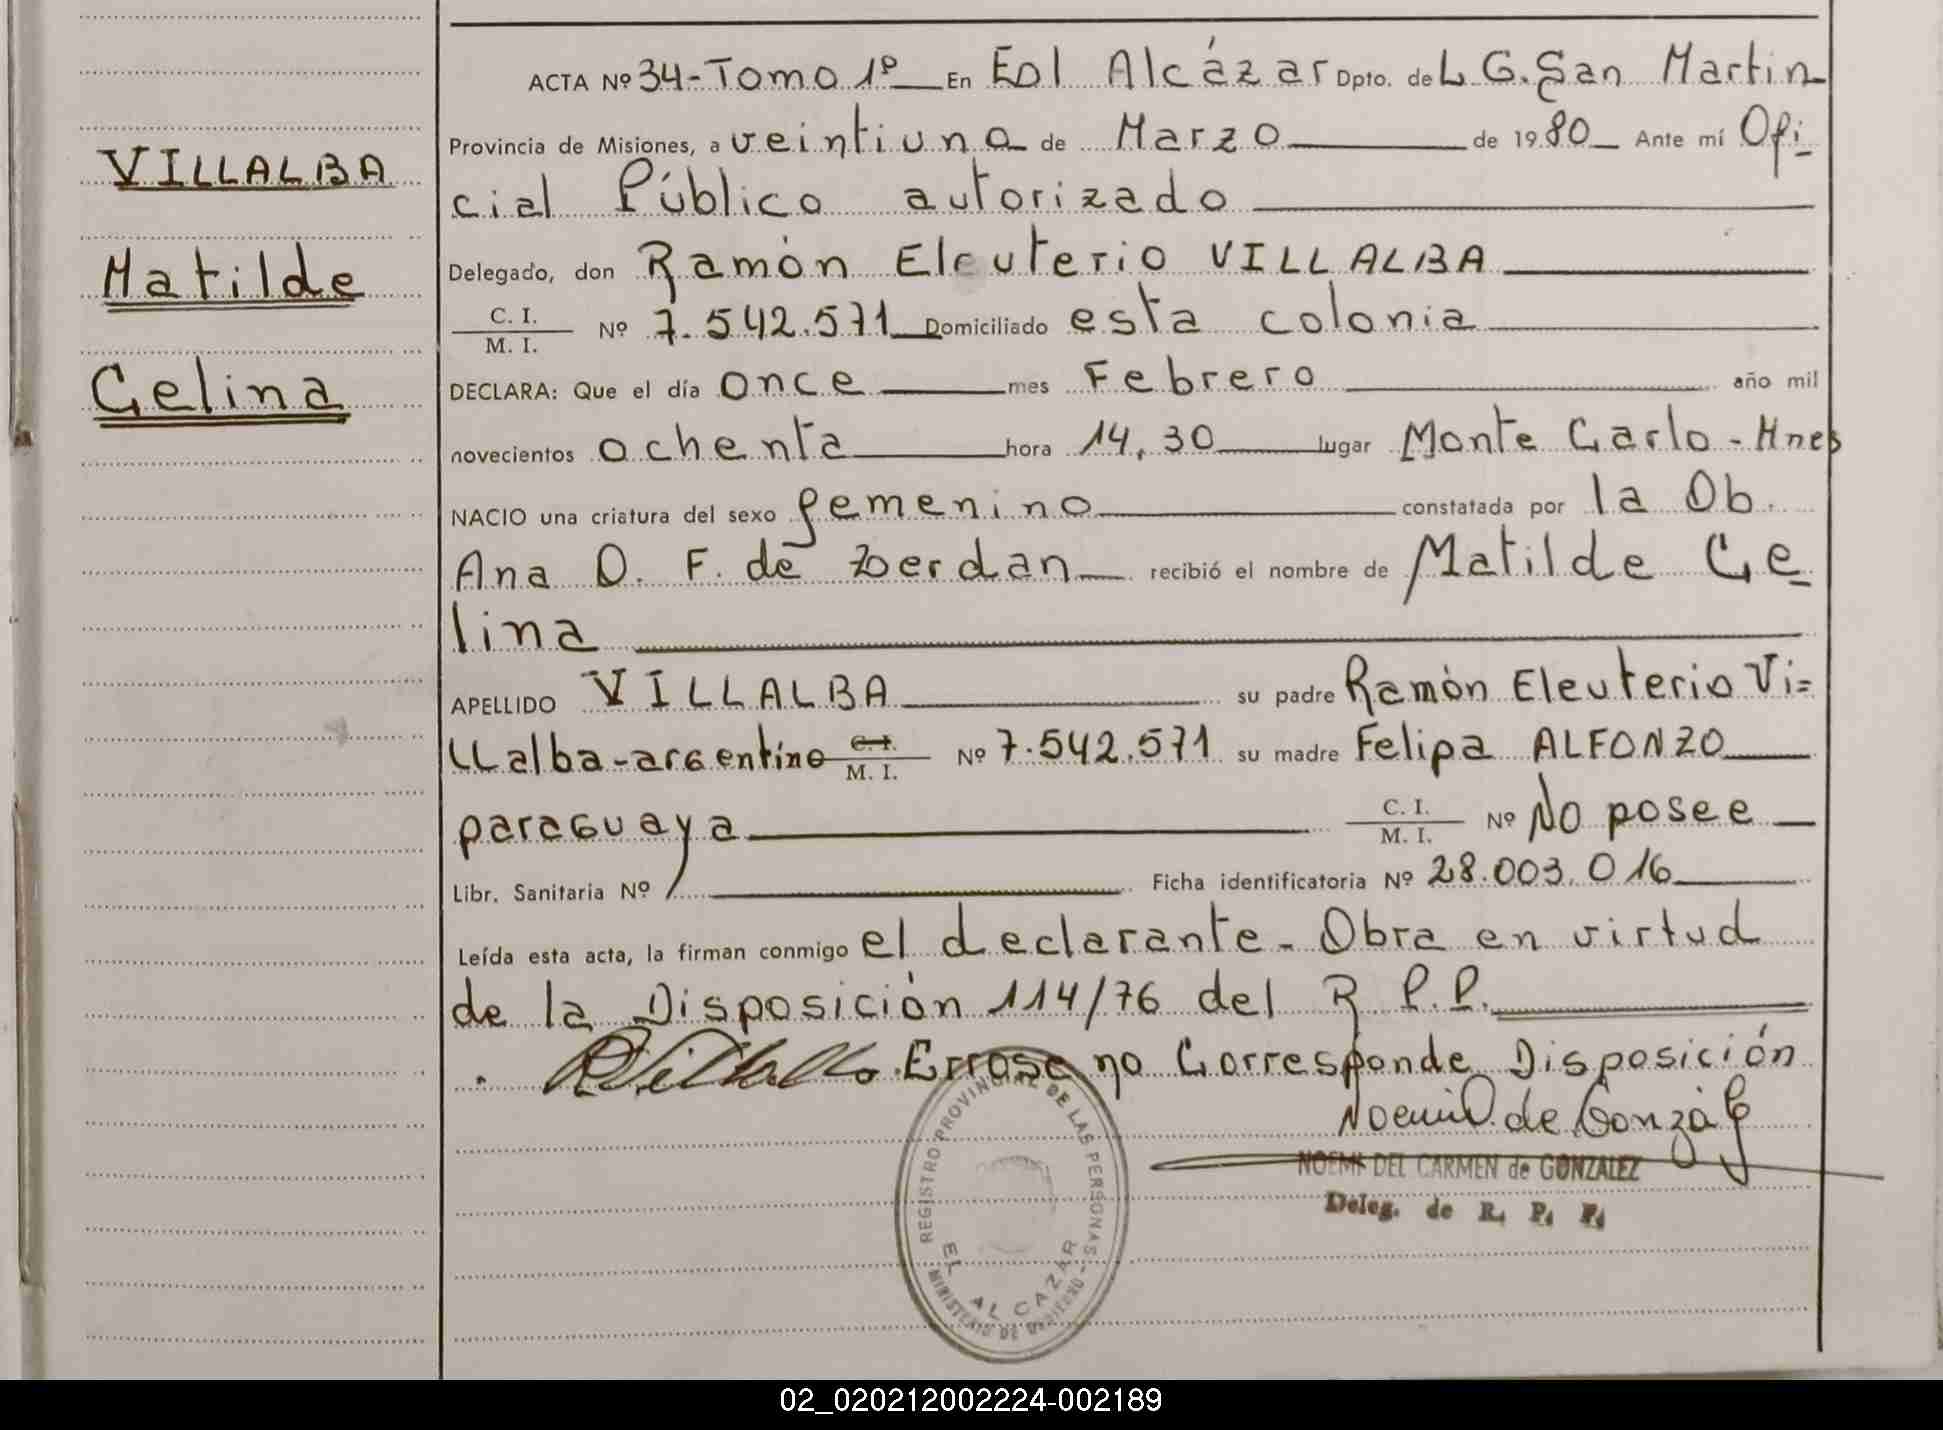 VILLALBA
Matilde
Celina
ACTA Nº 34-Tomo 1º En Eol Alcázar Dpto. de L G. San Martin
Provincia de Misiones, a veintiuno de Marzo de 1980 Ante mí Ofi
cial Público autorizado
Delegado, don Ramón Eleuterio VILLALBA
C. I.
M. I. Nº 7.542.571 Domiciliado esta colonia
DECLARA: Que el día once mes Febrero año mil
novecientos ochenta hora 14,30 lugar Monte Carlo - Mnes
NACIO una criatura del sexo femenino constatada por la Ob.
Ana D. F. de Zerdan recibió el nombre de Matilde Ce
lina
APELLIDO VILLALBA su padre Ramón Eleuterio Vi=
llalba-argentino C.I. M. I. Nº 7.542.571 su madre Felipa ALFONZO
paraguaya C. I. M. I. Nº No posee
Libr. Sanitaria Nº / Ficha identificatoria Nº 28.003.016
Leída esta acta, la firman conmigo el declarante - Obra en virtud
de la Disposición 114/76 del R P.P.
. RVillalba Errose no Corresponde Disposición
Noemi D. de Gonzá
NOEMI DEL CARMEN de GONZALEZ
Deleg. de R. P. P.
REGISTRO PROVINCIAL DE LAS PERSONAS
EL ALCAZAR
MINISTERIO DE GOBIERNO
02_020212002224-002189